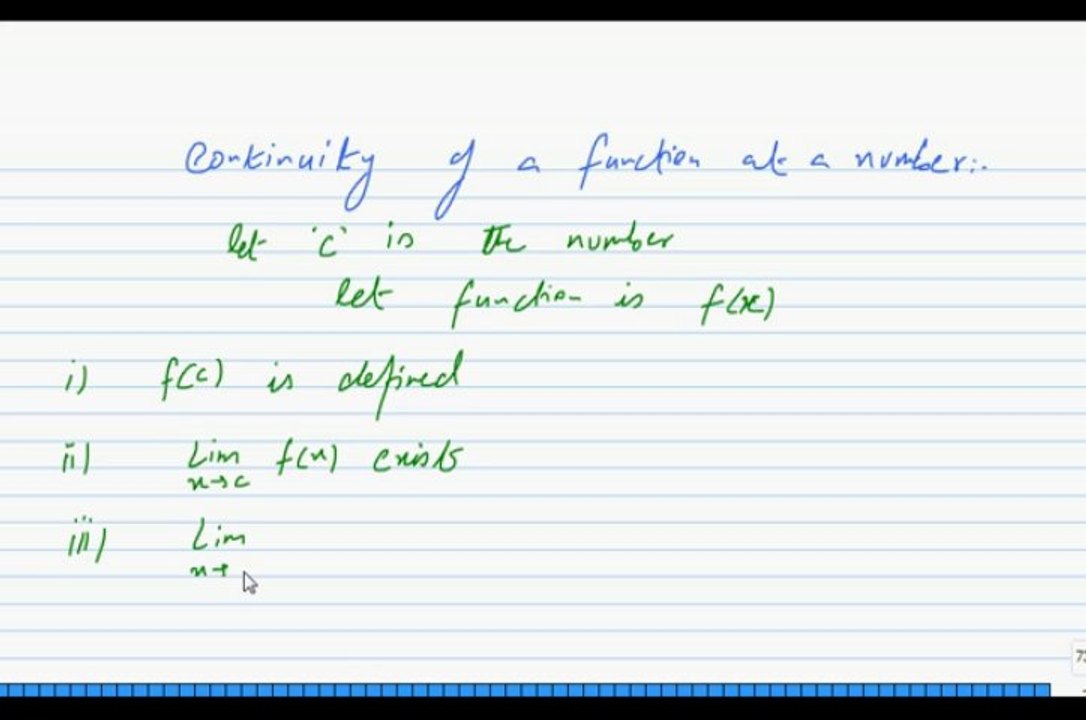 Continuity of a function at a number:-
let 'c' is the number
let function is f(x)
i) f(c) is defined
ii) Lim f(x) exists
x→c
iii) Lim
x→